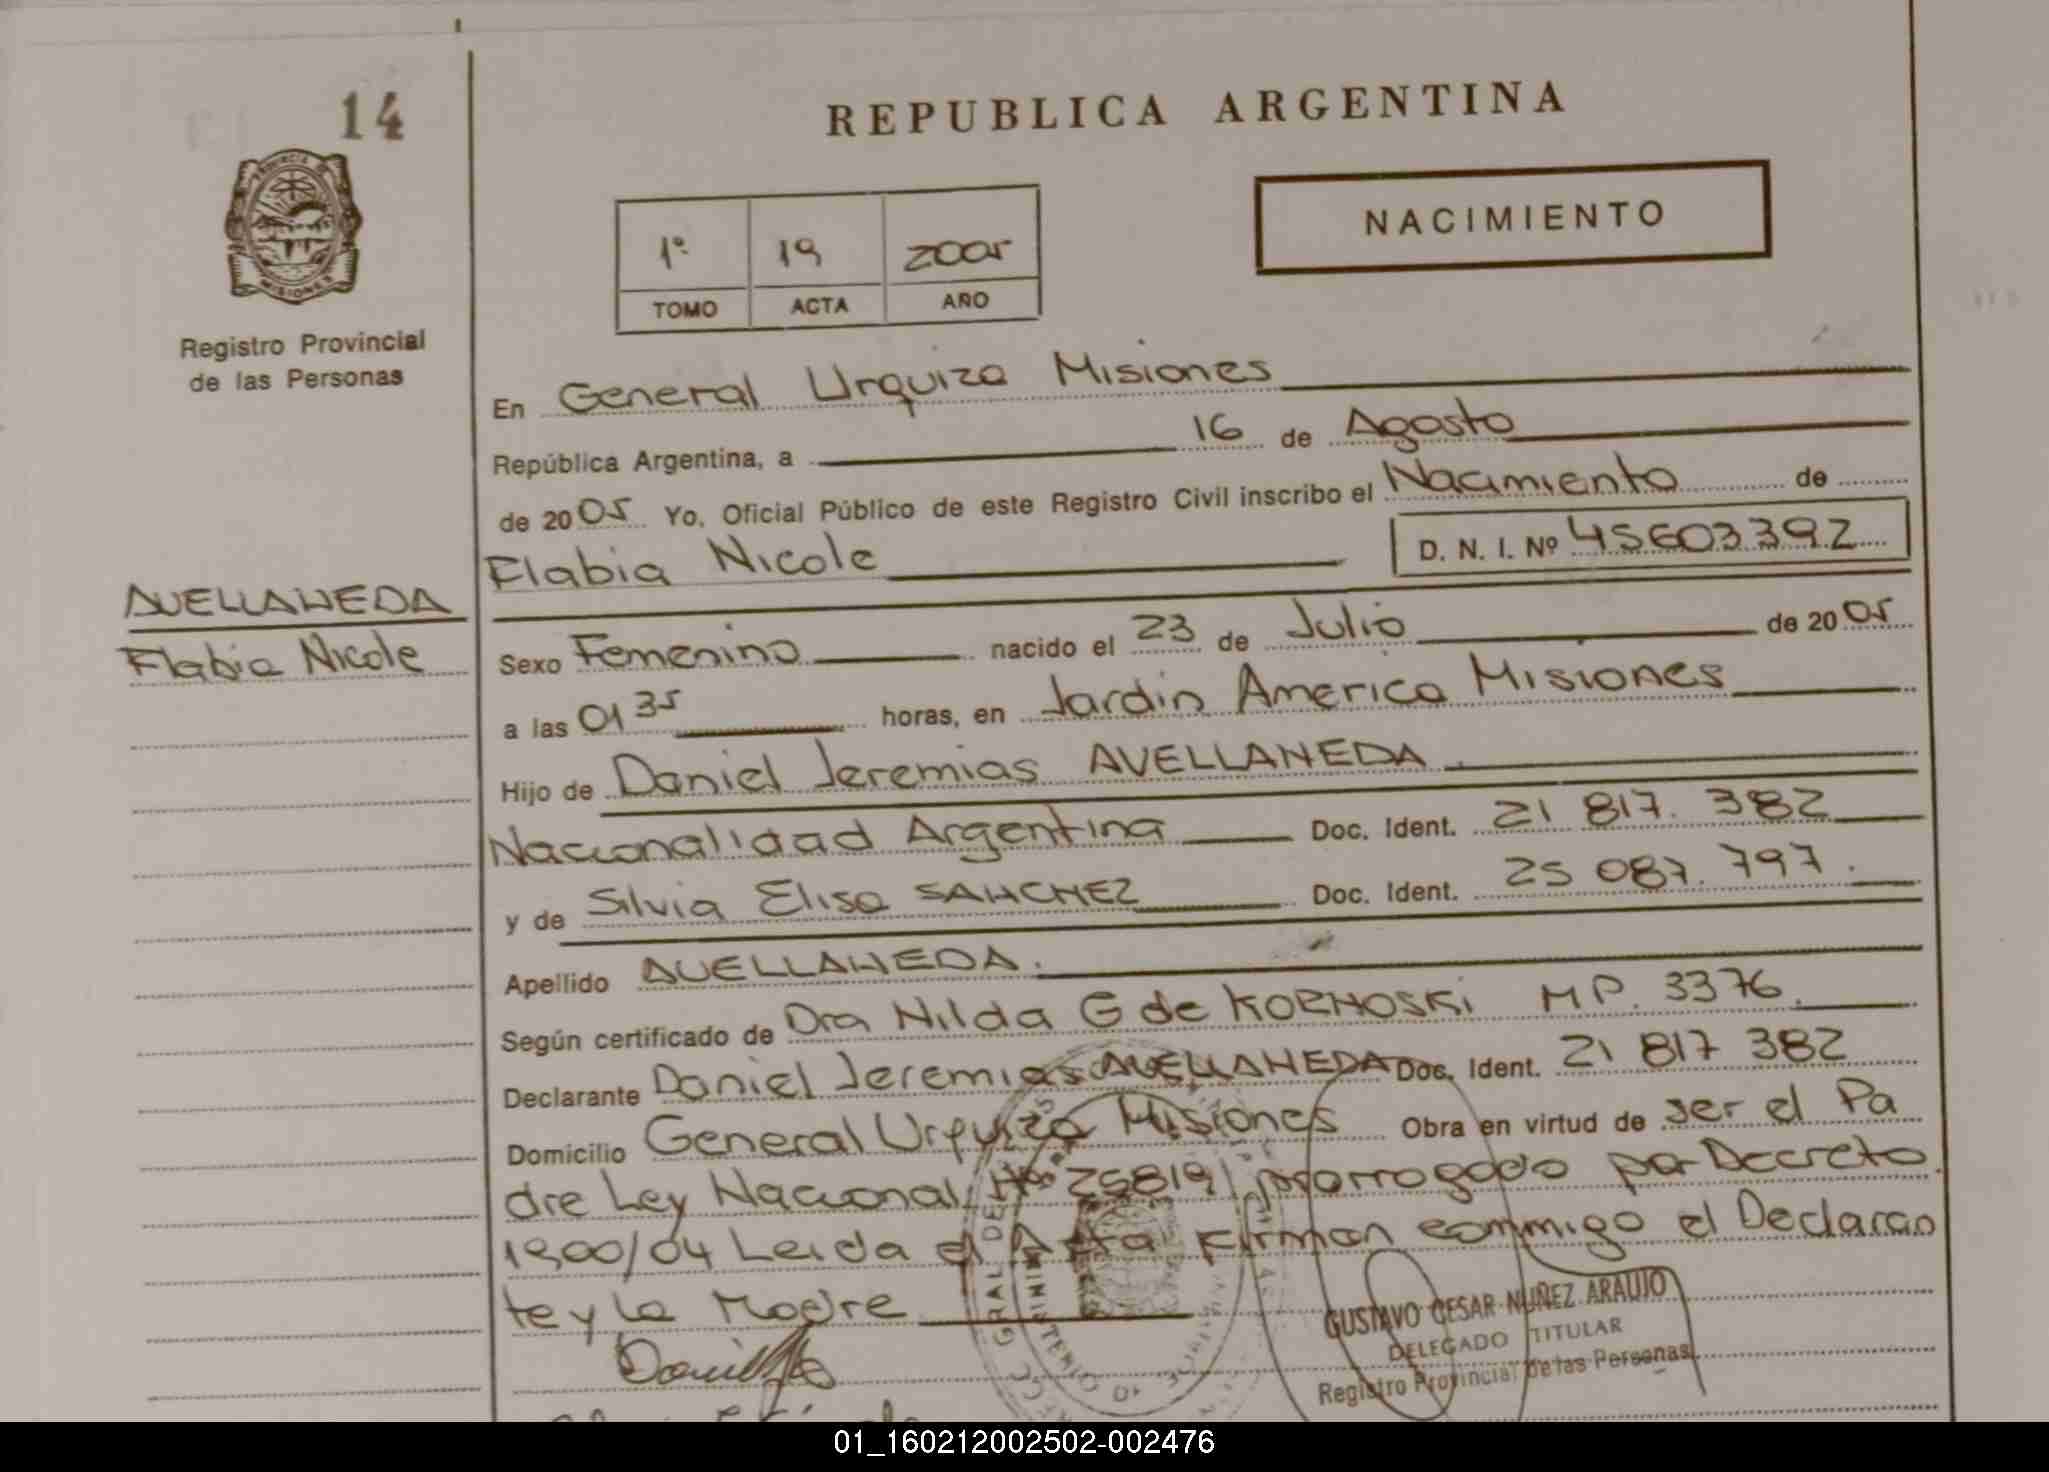 14
REPUBLICA ARGENTINA
PROVINCIA DE
MISIONES
NACIMIENTO
1º 19 2005
TOMO ACTA AÑO
Registro Provincial
de las Personas
En General Urquiza Misiones
República Argentina, a 16 de Agosto
de 2005 Yo, Oficial Público de este Registro Civil inscribo el Nacimiento de
Flabia Nicole D. N. I. Nº 45603392
AVELLANEDA
Flabia Nicole
Sexo Femenino nacido el 23 de Julio de 2005
a las 01 35 horas, en Jardin America Misiones
Hijo de Daniel Jeremias AVELLANEDA
Nacionalidad Argentina Doc. Ident. 21 817. 382
y de Silvia Elisa SANCHEZ Doc. Ident. 25 087. 797.
Apellido AVELLANEDA.
Según certificado de Dra Nilda G de KORNOSKI MP. 3376.
Declarante Daniel Jeremias AVELLANEDA Doc. Ident. 21 817 382
Domicilio General Urquiza Misiones Obra en virtud de ser el Pa
dre Ley Nacional Nº 25819 prorrogado por Decreto
1900/04 Leida el Acta Firman conmigo el Declaran
te y la Madre
GUSTAVO CESAR NUÑEZ ARAUJO
DELEGADO TITULAR
Registro Provincial de las Personas
01_160212002502-002476